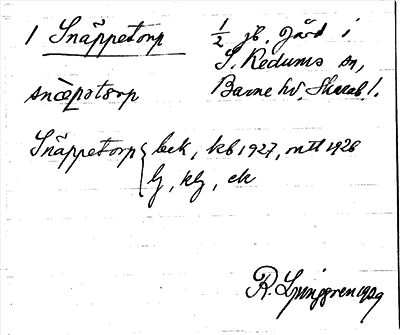 1 Snäppetorp
½ jb. gård i
S. Kedums sn,
Barne hd, Skarab. l.
snœ̀pətɵrp
Snäppetorp { bek, kb 1927, mtl 1928
lj, klj, ek
R. Ljunggren 1929